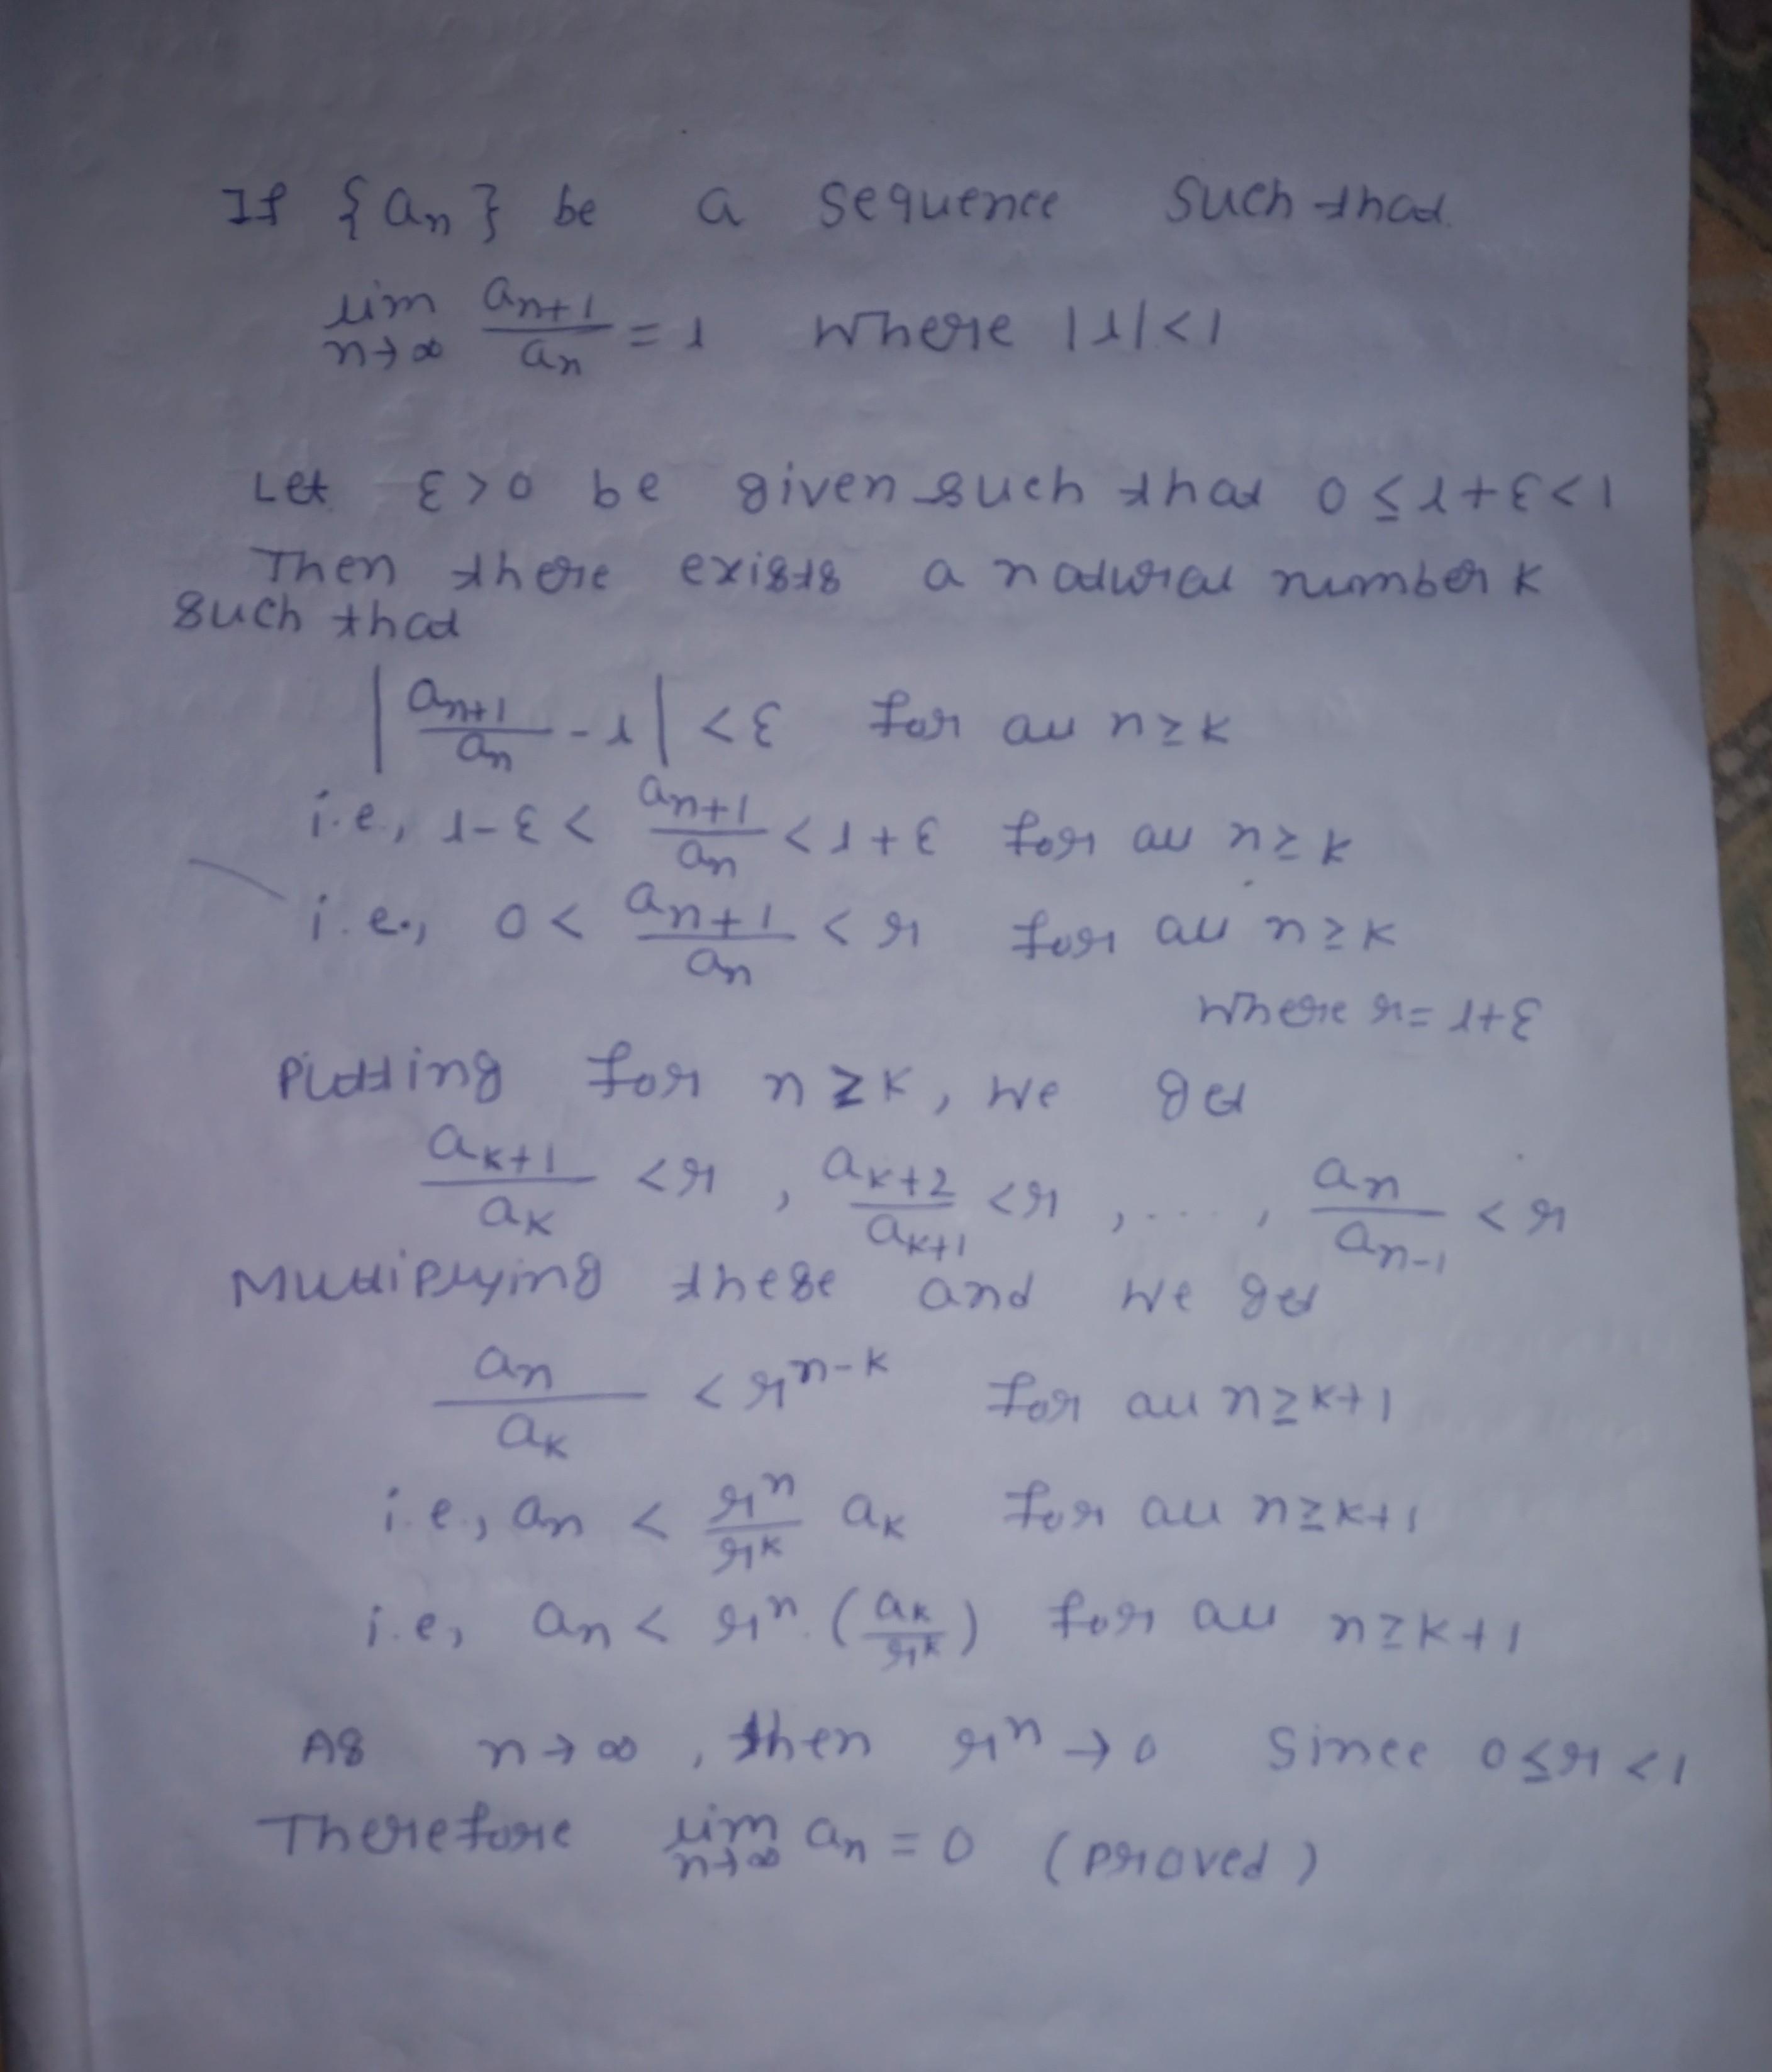 If {an} be a sequence such that
lim n→∞ an+1/an = l where |l|<1
Let ε>0 be given such that 0≤l+ε<1
Then there exists a natural number k
such that
|an+1/an - l| <ε for all n≥k
i.e., l-ε < an+1/an < l+ε for all n≥k
i.e., 0< an+1/an < r for all n≥k
where r=l+ε
Putting for n≥k, we get
ak+1/ak <r , ak+2/ak+1 <r ,...., an/an-1 <r
Multiplying these and we get
an/ak < r^n-k for all n≥k+1
i.e., an < r^n/r^k ak for all n≥k+1
i.e, an < r^n.(ak/r^k) for all n≥k+1
As n→∞, then r^n→0 since 0≤r<1
Therefore lim n→∞ an=0 (proved)